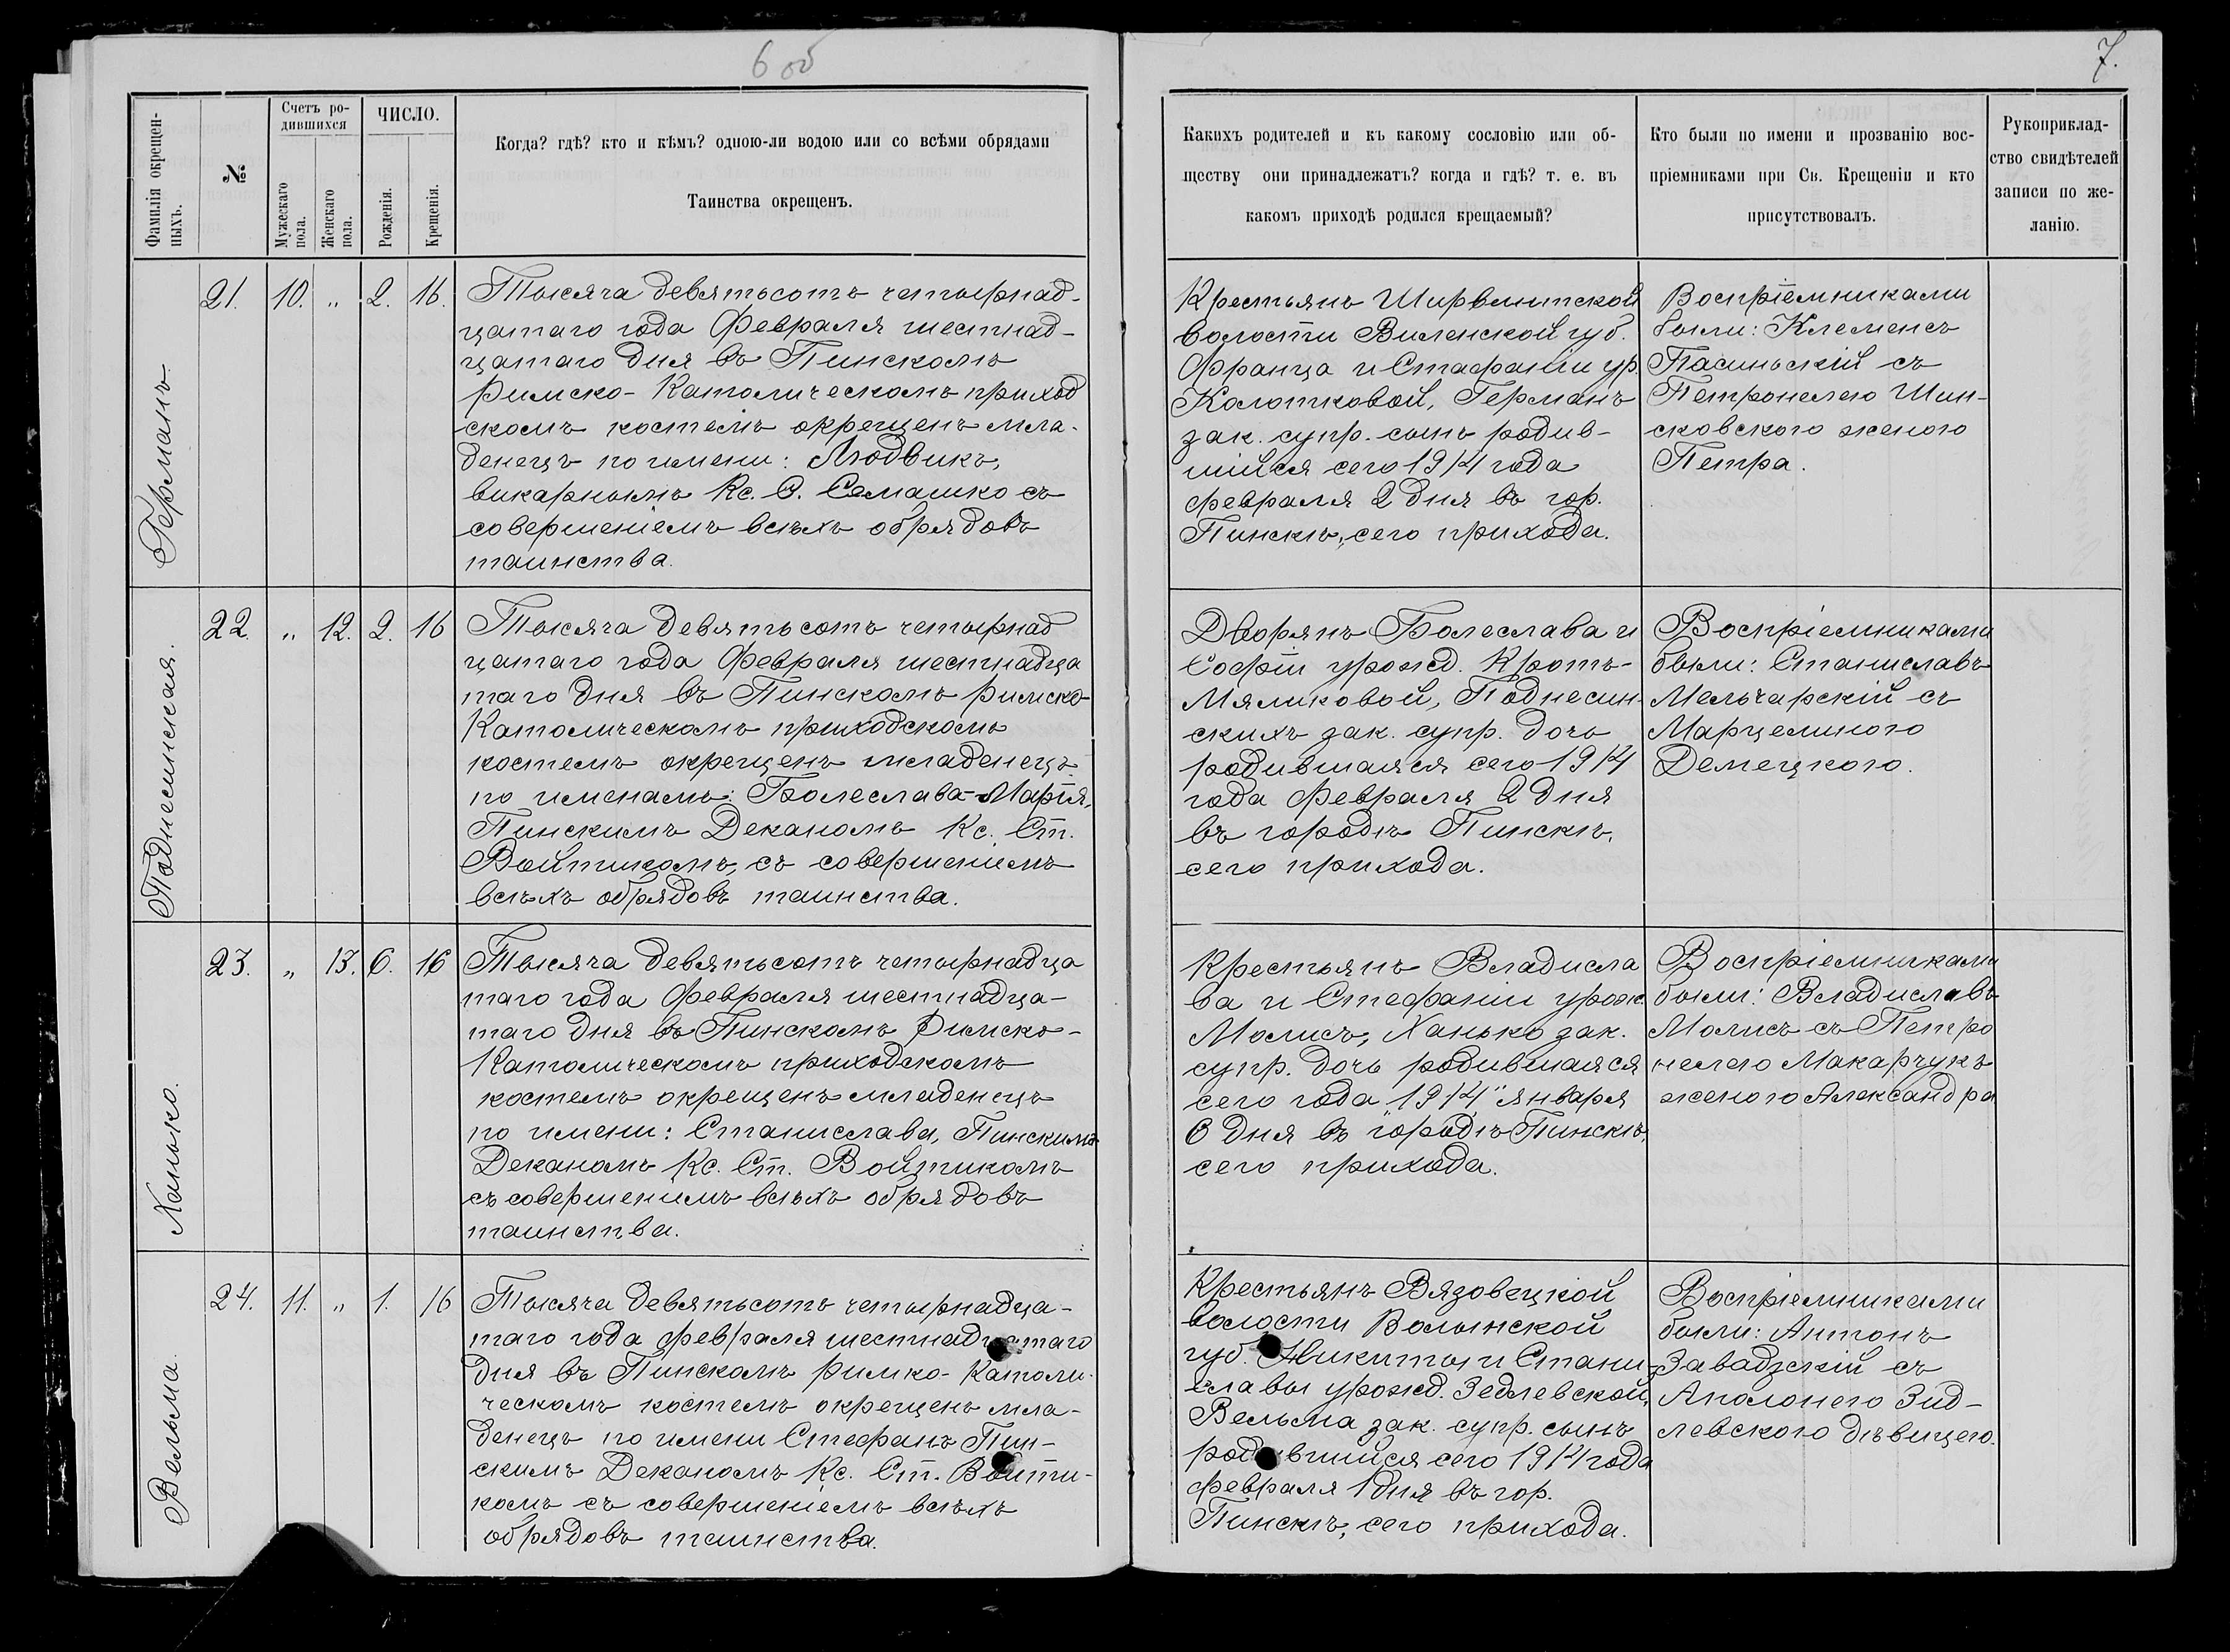 6 об
7.
Фамилія окрещен-
ныхъ.
№
Счетъ ро-
дившихся
Мужескаго
пола.
Женскаго
пола.
ЧИСЛО.
Рожденія.
Крещенія.
Когда? гдѣ? кто и кѣмъ? одною-ли водою или со всѣми обрядами
Таинства окрещенъ.
Какихъ родителей и къ какому сословію или об-
ществу они принадлежатъ? когда и гдѣ? т. е. въ
какомъ приходѣ родился крещаемый?
Кто были по имени и прозванію вос-
пріемниками при Св. Крещеніи и кто
присутствовалъ.
Рукоприклад-
ство свидѣтелей
записи по же-
ланію.
Германъ.
21. 10. „ 2. 16.
Тысяча девятьсотъ четырнад-
цатаго года Февраля шестнад-
цатаго дня въ Пинскомъ
Римско-Католическомъ приход
скомъ костелѣ окрещенъ мла-
денецъ по имени: Людвикъ,
викарнымъ Кс. О. Семашко съ
совершеніемъ всѣхъ обрядовъ
таинства.
Крестьянъ Ширвинтской
волости Виленской губ.
Франца и Стафаніи ур.
Колотковой, Германъ
зак. супр. сынъ родив-
шійся сего 1914 года
февраля 2 дня въ гор.
Пинскѣ, сего прихода.
Воспріемниками
были: Клеменсъ
Пасиньскій съ
Петронелею Шин-
сковскою женою
Петра.
Поднесинская.
22. „ 12. 2. 16
Тысяча девятьсотъ четырнад
цатаго года Февраля шестнадца
таго дня въ Пинскомъ Римско-
Католическомъ приходскомъ
костелѣ окрещенъ младенецъ
по именамъ: Болеслава-Марія,
Пинскимъ Деканомъ Кс. Ст.
Войтикомъ, съ совершеніемъ
всѣхъ обрядовъ таинства.
Дворянъ Болеслава и
Софіи урожд. Кротъ-
Мяликовой, Поднесин-
скихъ зак. супр. дочь
родившаяся сего 1914
года Февраля 2 дня
въ городѣ Пинскѣ,
сего прихода.
Воспріемниками
были: Станиславъ
Мельчарскій съ
Марцелиною
Демецкою.
Ханько.
23. „ 13. 6. 16
Тысяча девятьсотъ четырнадца
таго года Февраля шестнадца-
таго дня въ Пинскомъ Римско-
Католическомъ приходскомъ
костелѣ окрещенъ младенецъ
по имени: Станислава, Пинскимъ
Деканомъ Кс. Ст. Войтикомъ
съ совершенимъ всѣхъ обрядовъ
таинства.
Крестьянъ Владисла
ва и Стефаніи урож.
Молисъ, Ханько зак.
супр. дочь родившаяся
сего года „1914" января
6 дня въ городѣ Пинскѣ,
сего прихода.
Воспріемниками
были: Владиславъ
Молисъ съ Петро
нелею Макарчукъ
женою Александра
Вельма.
24. 11. „ 1. 16
Тысяча девятьсотъ четырнадца-
таго года февраля шестнадцатаго
дня въ Пинскомъ Римко-Католи-
ческомъ костелѣ окрещенъ мла-
денецъ по имени Стефанъ Пин-
скимъ Деканомъ Кс. Ст. Войти-
комъ съ совершеніемъ всѣхъ
обрядовъ таинства.
Крестьянъ Вязовецкой
волости Волынской
губ. Никиты и Стани-
славы урожд. Зедлевской,
Вельма зак. супр. сынъ
родившійся сего 1914 года
февраля 1 дня въ гор.
Пинскѣ, сего прихода.
Воспріемниками
были: Антонъ
Завадзскій съ
Аполонею Зид-
левскою дѣвицею.